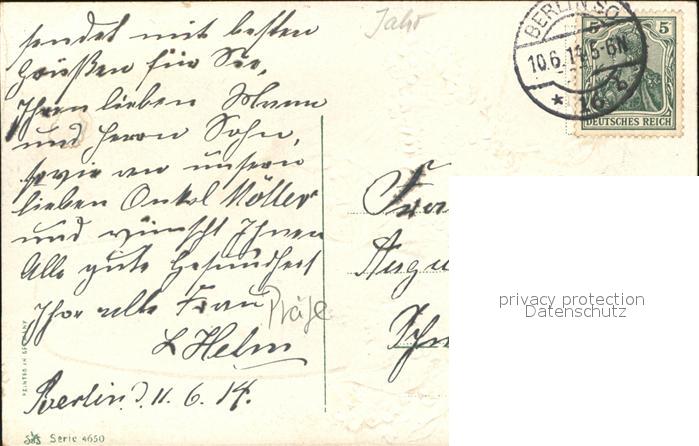 Jahr
sendet mit besten
Grüßen für Sie,
Ihren lieben Mann
und Herrn Sohn,
sowie an unsern
lieben Onkel Möller
und wünscht Ihnen
Alle gute Gesundheit
Ihre alte Frau
L Helm
Berlin d. 11. 6. 14.
Präge
BERLIN SO
10.6.14.5-6N
* 16 b
5 5
DEUTSCHES REICH
Frau
Augu
Sch
privacy protection
Datenschutz
PRINTED IN GERMANY
Serie 4650